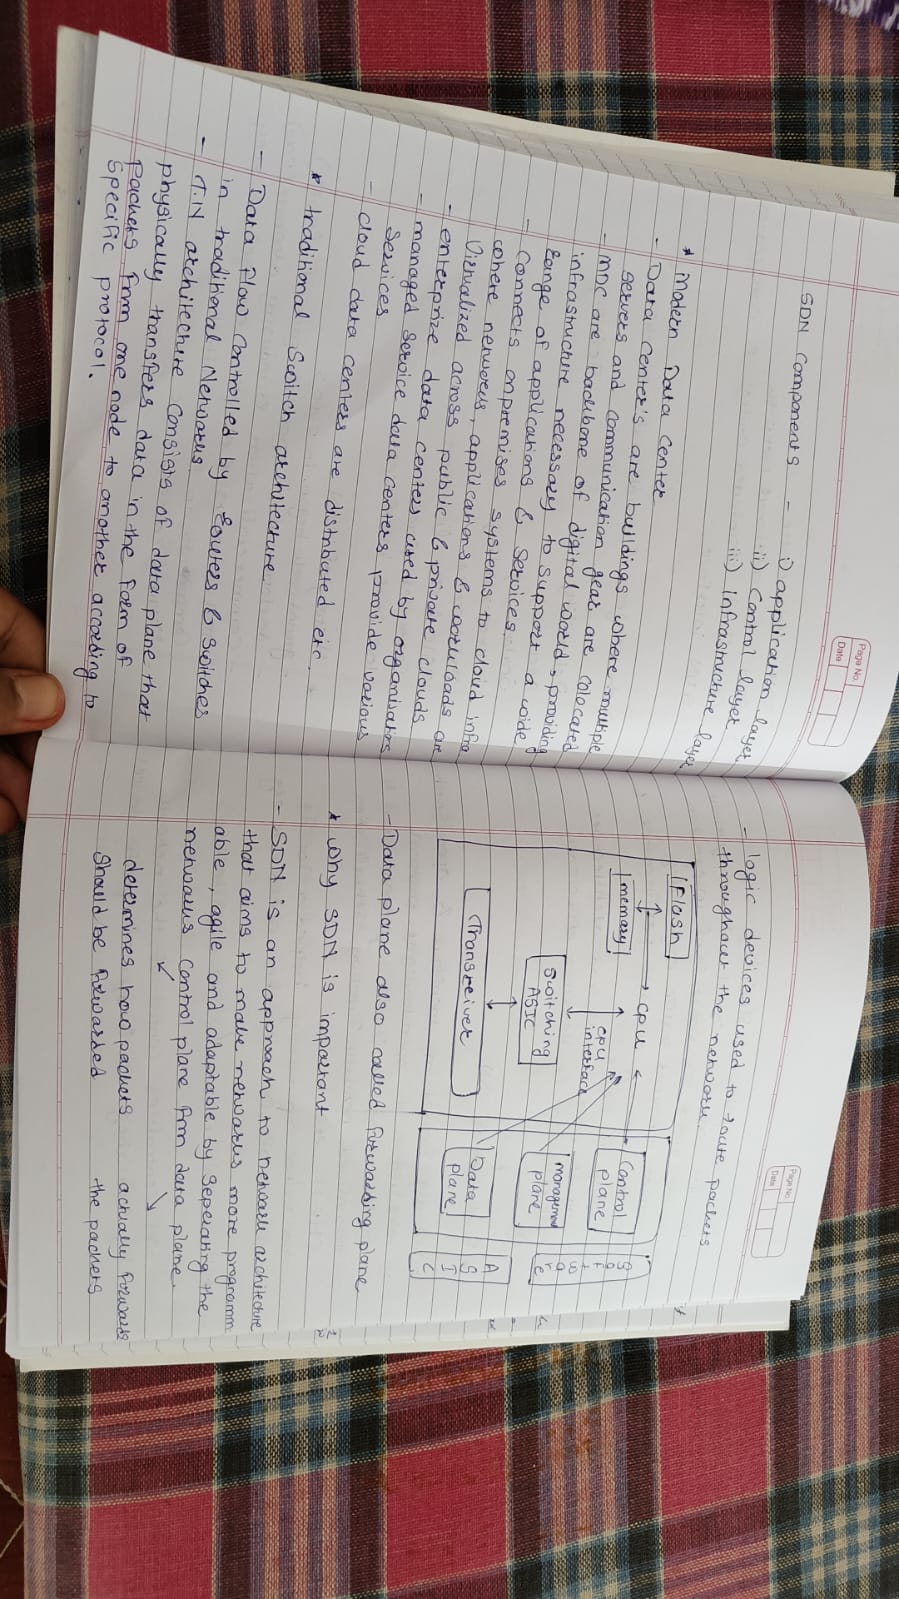 Page No.
Date
SDN Components - i) application layer
ii) Control layer
iii) infrastructure layer
* Modern Data Center
- Data Center's are buildings where multiple
servers and communication gear are colocated
- MDC are backbone of digital world, providing
infrastructure necessary to support a wide
range of applications & Services.
- Connects onpremises systems to cloud infra
where networks, applications & workloads are
Virtualized across public & private clouds
- enterprize data centers used by organisations
- managed service data centers provide various
services
- cloud data centers are distributed etc.
* traditional Switch architecture
- Data flow controlled by routers & switches
in traditional Networks
- T.N architecture consists of data plane that
physically transfers data in the form of
packets from one node to another according to
specific protocol.
Page No.
Date
- logic devices used to route packets
throughout the network.
Flash
memory
CPU
CPU
interface
Switching
ASIC
Transreiver
Control
plane
management
plane
Data
plane
Software
ASIC
- Data plane also called forwarding plane
* why SDN is important
- SDN is an approach to network architecture
that aims to make networks more programm
able, agile and adaptable by seperating the
networks control plane from data plane.
determines how packets
should be forwarded
actually forwards
the packets